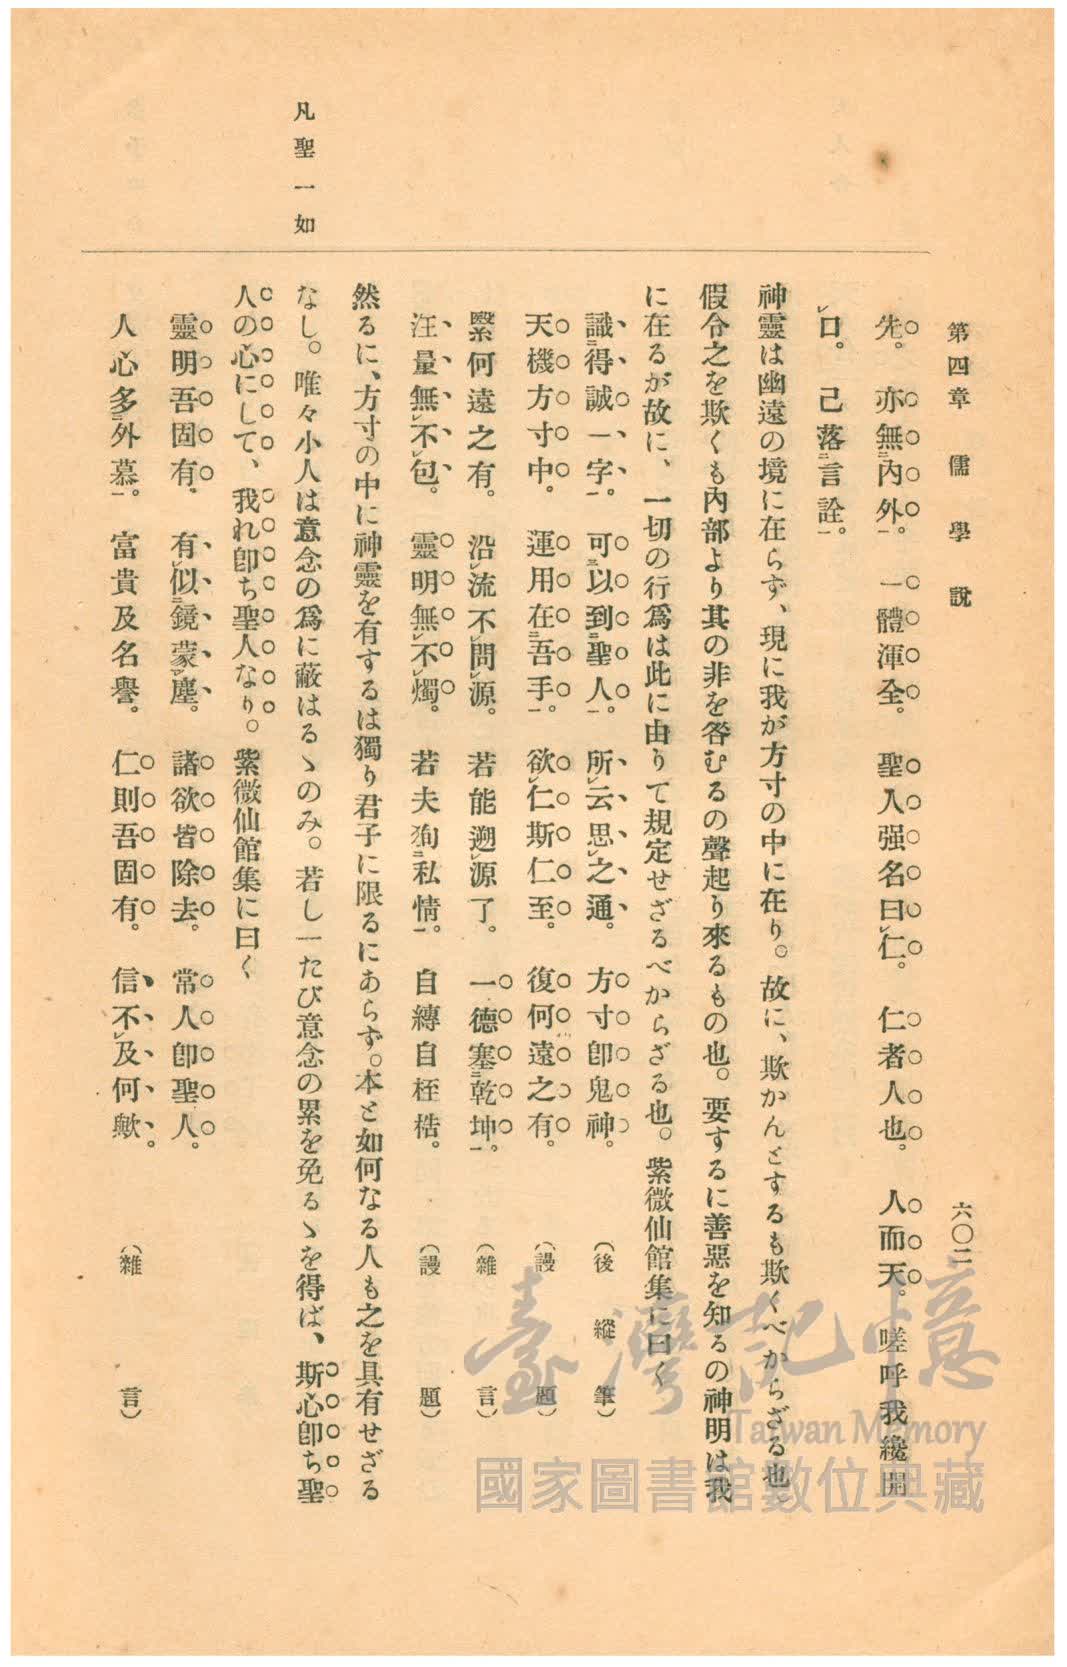 第四章 儒學說 六〇二
先。亦無二內外一。一體渾全。聖人强名曰レ仁。仁者人也。人而天。嗟呼我纔開
レ口。己落二言詮一。
神靈は幽遠の境に在らず、現に我が方寸の中に在り。故に、欺かんとするも欺くべからざる也。
假令之を欺くも內部より其の非を咎むるの聲起り來るもの也。要するに善惡を知るの神明は我
に在るが故に、一切の行爲は此に由りて規定せざるべからざる也。紫微仙館集に曰く
識二得誠一字一。可三以到二聖人一。所レ云思レ之通。方寸卽鬼神。（後縱筆）
天機方寸中。運用在二吾手一。欲レ仁斯仁至。復何遠之有。（謾題）
繄何遠之有。沿レ流不レ問レ源。若能遡レ源了。一德塞二乾坤一。（雜言）
汪量無レ不レ包。靈明無レ不レ燭。若夫狥二私情一。自縛自桎梏。（謾題）
然るに、方寸の中に神靈を有するは獨り君子に限るにあらず。本と如何なる人も之を具有せざる
凡聖一如
なし。唯々小人は意念の爲に蔽はるゝのみ。若し一たび意念の累を免るゝを得ば、斯心卽ち聖
人の心にして、我れ卽ち聖人なり。紫微仙館集に曰く
靈明吾固有。有レ似二鏡蒙一レ塵。諸欲皆除去。常人卽聖人。
人心多二外慕一。富貴及名譽。仁則吾固有。信不レ及何歟。（雜言）
臺灣記憶
Taiwan Memory
國家圖書館數位典藏